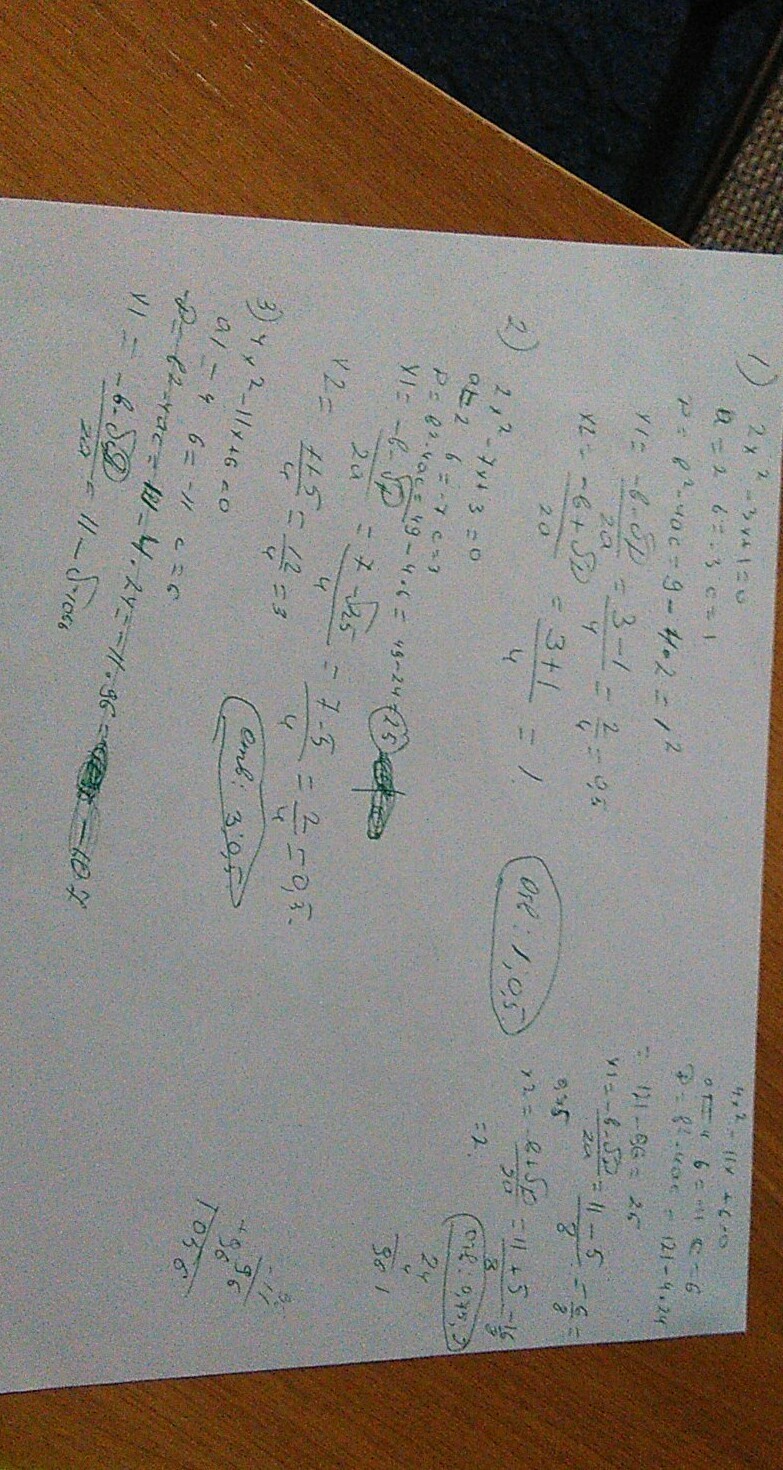 1) 2x² - 3x + 1 = 0
a = 2 b = -3 c = 1
D = b² - 4ac = 9 - 4·2 = 1²
x1 = -b-√D/2a = 3-1/4 = 2/4 = 0,5
x2 = -b+√D/2a = 3+1/4 = 1.
Отв: 1; 0,5.
2) 2x² - 7x + 3 = 0
a = 2 b = -7 c = 3
D = b² - 4ac = 49 - 4·6 = 49 - 24 = 25
x1 = -b-√D/2a = 7-√25/4 = 7-5/4 = 2/4 = 0,5.
x2 = 7+5/4 = 12/4 = 3
Отв: 3; 0,5.
3) 4x² - 11x + 6 = 0
a = 4 b = -11 c = 6
D = b² - 4ac = -11 - 4·24 = -11·96 = -107
x1 = -b-√D/2a = 11-√-1056
4x² - 11x + 6 = 0
a = 4 b = -11 c = 6
D = b² - 4ac = 121 - 4·24
= 121 - 96 = 25
x1 = -b-√D/2a = 11-5/8 = 6/8 =
0,75
x2 = -b+√D/2a = 11+5/8 = 16/8
= 2.
24
4
96
-11
96
+96
1056